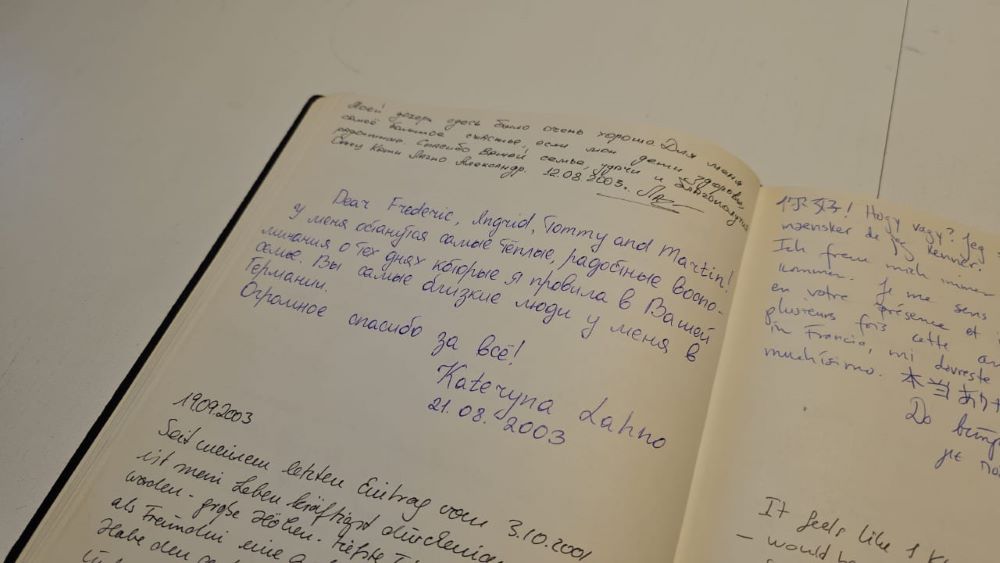 Моей дочери здесь было очень хорошо. Для меня
самое большое счастье, если мои дети здоровы,
радостны. Спасибо Вашей семье, удачи и благополучия
Отец Кати Лагно Александр. 12.08.2003г.
Dear Frederic, Ingrid, Tommy and Martin!
У меня останутся самые тёплые, радостные воспо-
минания о тех днях которые я провила в Вашей
семье. Вы самые близкие люди у меня в
Германии.
Огромное спасибо за всё!
Kateryna Lahno
21.08.2003
19.09.2003
Seit meinem letzten Eintrag vom 3.10.2001
ist mein Leben kräftigst
worden - große Höhen - tiefste
als Freundin eine
Habe den
你好! Hogy vagy? Jeg
mænsker de jeg kenner.
Ich freue mich immer
kommer. Je me sens
en votre présence et
plusieurs fois cette
in Francia, mi dovreste
muchísimo. 本当あり
Do
It feels like 1
- would be